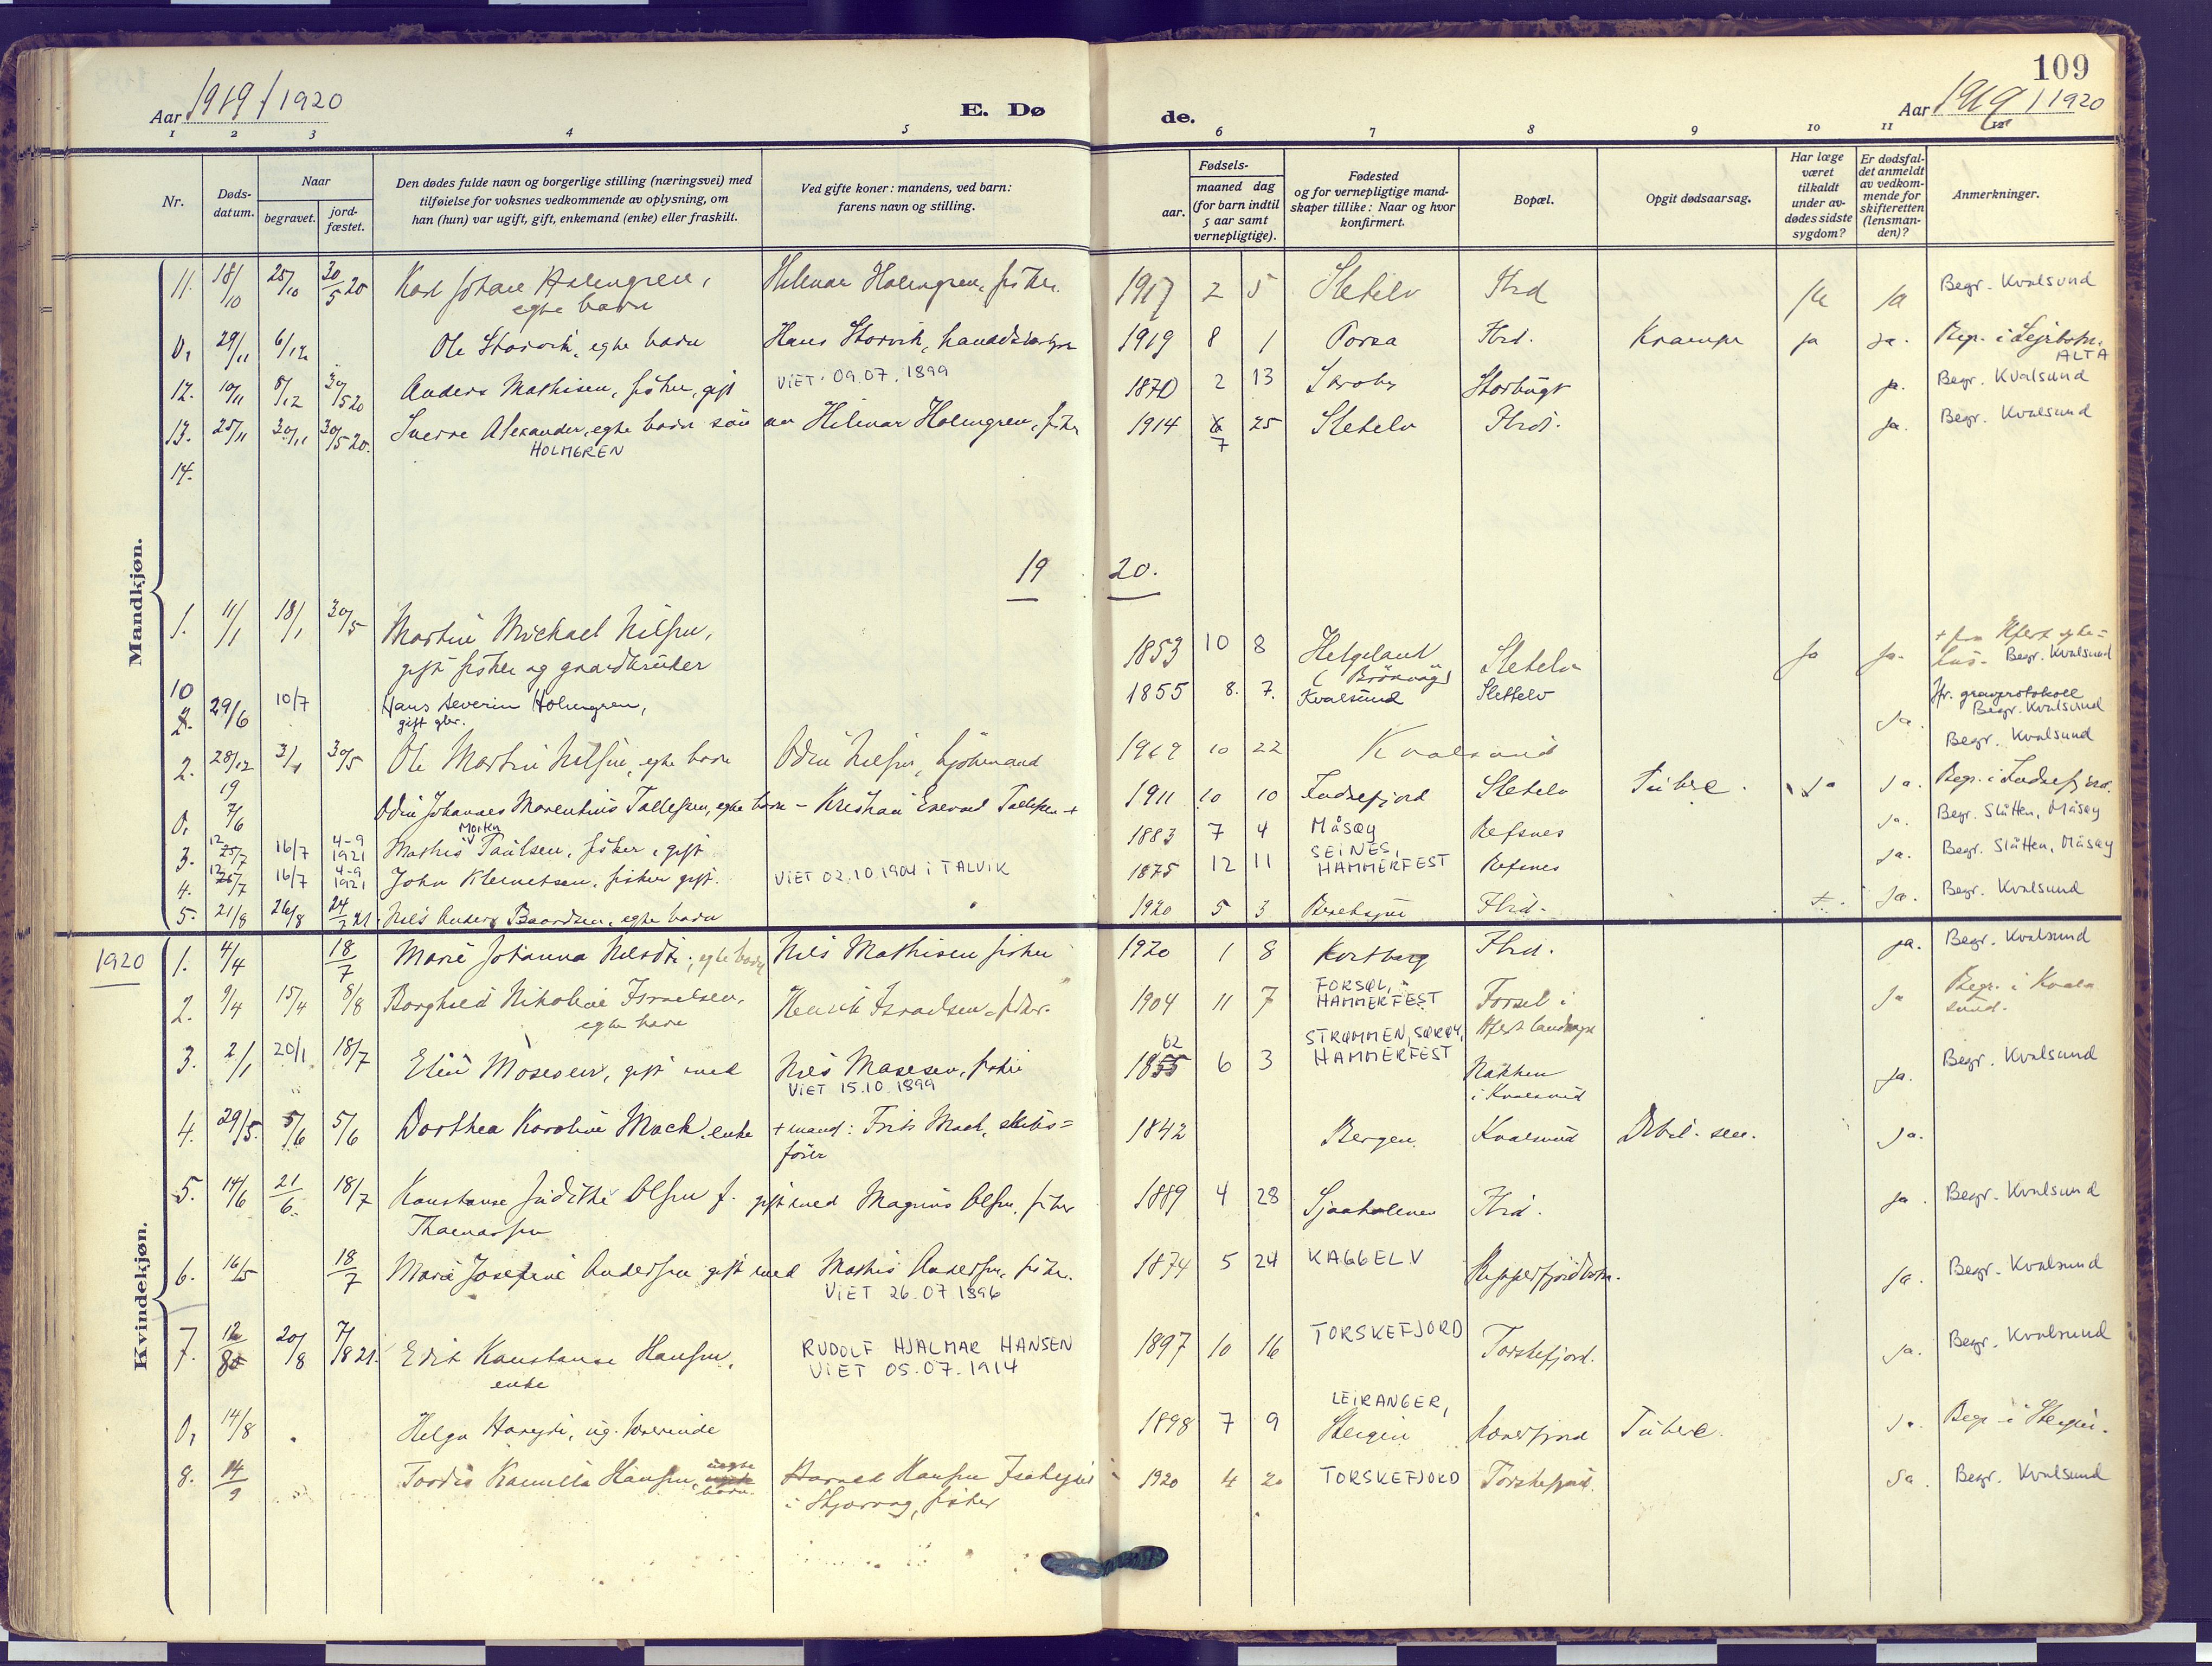 109
Aar 1919/1920
E. Dø
de.
Aar 1919/1920
1 2 3 4 5 6 7 8 9 10 11 12
Nr.
Døds-
datum.
Naar
begravet.
jord-
fæstet.
Den dødes fulde navn og borgerlige stilling (næringsvei) med
tilføielse for voksnes vedkommende av oplysning, om
han (hun) var ugift, gift, enkemand (enke) eller fraskilt.
Ved gifte koner: mandens, ved barn:
farens navn og stilling.
Fødsels-
aar.
maaned dag
(for barn indtil
5 aar samt
vernepligtige).
Fødested
og for vernepligtige mand-
skaper tillike: Naar og hvor
konfirmert.
Bopæl.
Opgit dødsaarsag.
Har læge
været
tilkaldt
under av-
dødes sidste
sygdom?
Er dødsfal-
det anmeldt
av vedkom-
mende for
skifteretten
(lensman-
den)?
Anmerkninger.
Mandkjøn.
11. 18/10 25/10 30/5 20 Karl Johan Holmgren, Hilmar Holmgren, fisker. 1917 2 5 Sletelv Ibid ja ja Begr. Kvalsund
egte barn
0, 29/11 6/12 Ole Storvik, egte barn Hans Storvik, 1919 8 1 Porsa Ibid. Krampe ja ja. Begr. i
ALTA
12. 10/11 8/12 30/5 20 Anders Mathisen, fisker, gift VIET 09.07.1899 1870 2 13 Storbugt ja. Begr. Kvalsund
13. 25/11 30/11 30/5 20. Sverre Alexander, egte barn søn av Hilmar Holmgren, fisker 1914 7 25 Sletelv Ibid. ja. Begr. Kvalsund
HOLMGREN
14.
19 20.
1. 11/1 18/1 30/5 Martin Michael Nilsen, 1853 10 8 Helgeland Sletelv ja ja. Begr. Kvalsund
gift fisker og gaardbruker
10 2. 29/6 10/7 Hans Severin Holmgren, 1855 8. 7. Kvalsund Slettelv Ja. Jfr. gravprotokoll
gift gbr. Begr. Kvalsund
2. 28/12 19 3/1 30/5 Ole Martin Nilsen, egte barn Odin Nilsen, sjömand 1919 10 22 Kvalsund Begr. Kvalsund
0, 7/6 Odin Johannes Marentius Tollefsen, egte barn - Kristian Tollefsen + 1911 10 10 Indrefjord Sletelv Tuberc. ja Ja. Begr. i Indrefjord.
3. 12/7 16/7 4-9 1921 Mathis Morten Paulsen, fisker, gift 1883 7 4 Måsøy Refsnes Ja. Begr. Slåtten, Måsøy
4. 12/7 16/7 4-9 1921 John Klemetsen, fisker gift. VIET 02.10.1904 i TALVIK 1875 12 11 SEINES, HAMMERFEST Refsnes Ja. Begr. Slåtten, Måsøy
5. 21/8 26/8 24/7 21. Nils Anders Baardsen, egte barn 1920 5 3 Ibid. Ja. Begr. Kvalsund
Kvindekjøn.
1920
1. 4/4 18/7 Marie Johanna, egte barn Nils Mathisen fisker 1920 1 8 Ibid. ja. Begr. Kvalsund
2. 9/4 15/4 8/8 Borghild Nikoline Israelsen, Henrik Israelsen, fisker. 1904 11 7 FORSØL, HAMMERFEST Forsøl i Ja Begr. i Kval
egte barn Hfest landsogn sund.
3. 2/1 20/1 18/7 Elen Mosesen, gift med Nils Mosesen, fisker 1855 62 6 3 STRØMMEN, SØRØY, HAMMERFEST Nakken ja. Begr. Kvalsund
VIET 15.10.1899 i Kvalsund
4. 29/5. 5/6 5/6 Dorthea Karoline Mack, enke + mand: Frits Mack, skibs= 1842 Bergen Kvalsund Debil. sen. Ja.
fører
5. 14/6 21/6 18/7 Konstanse Judithe Olsen f. gift med Magnus Olsen, fisker 1889 4 28 Sjaaholmen Ibid. ja. Begr. Kvalsund
Thomassen
6. 16/5 18/7 Marie Josefine Andersen gift med Mathis Andersen, fisker. 1874 5 24 KAGGELV Repparfjordbotn. ja. Begr. Kvalsund
VIET 26.07.1896
7. 12/8 20/8 7/8 21. Edit Konstanse Hansen, RUDOLF HJALMAR HANSEN 1897 10 16 TORSKEFJORD Torskefjord. Ja. Begr. Kvalsund
enke VIET 05.07.1914
0, 14/8 Helga, ug. lærerinde 1898 7 9 LEIRANGER, Steigen Tuberc. Ja. Begr. i Steigen.
8. 14/9 Tordis Kamilla Hansen, uegte barn Harald Hansen 1920 4 20 TORSKEFJORD Torskefjord. Ja. Begr. Kvalsund
i, fisker